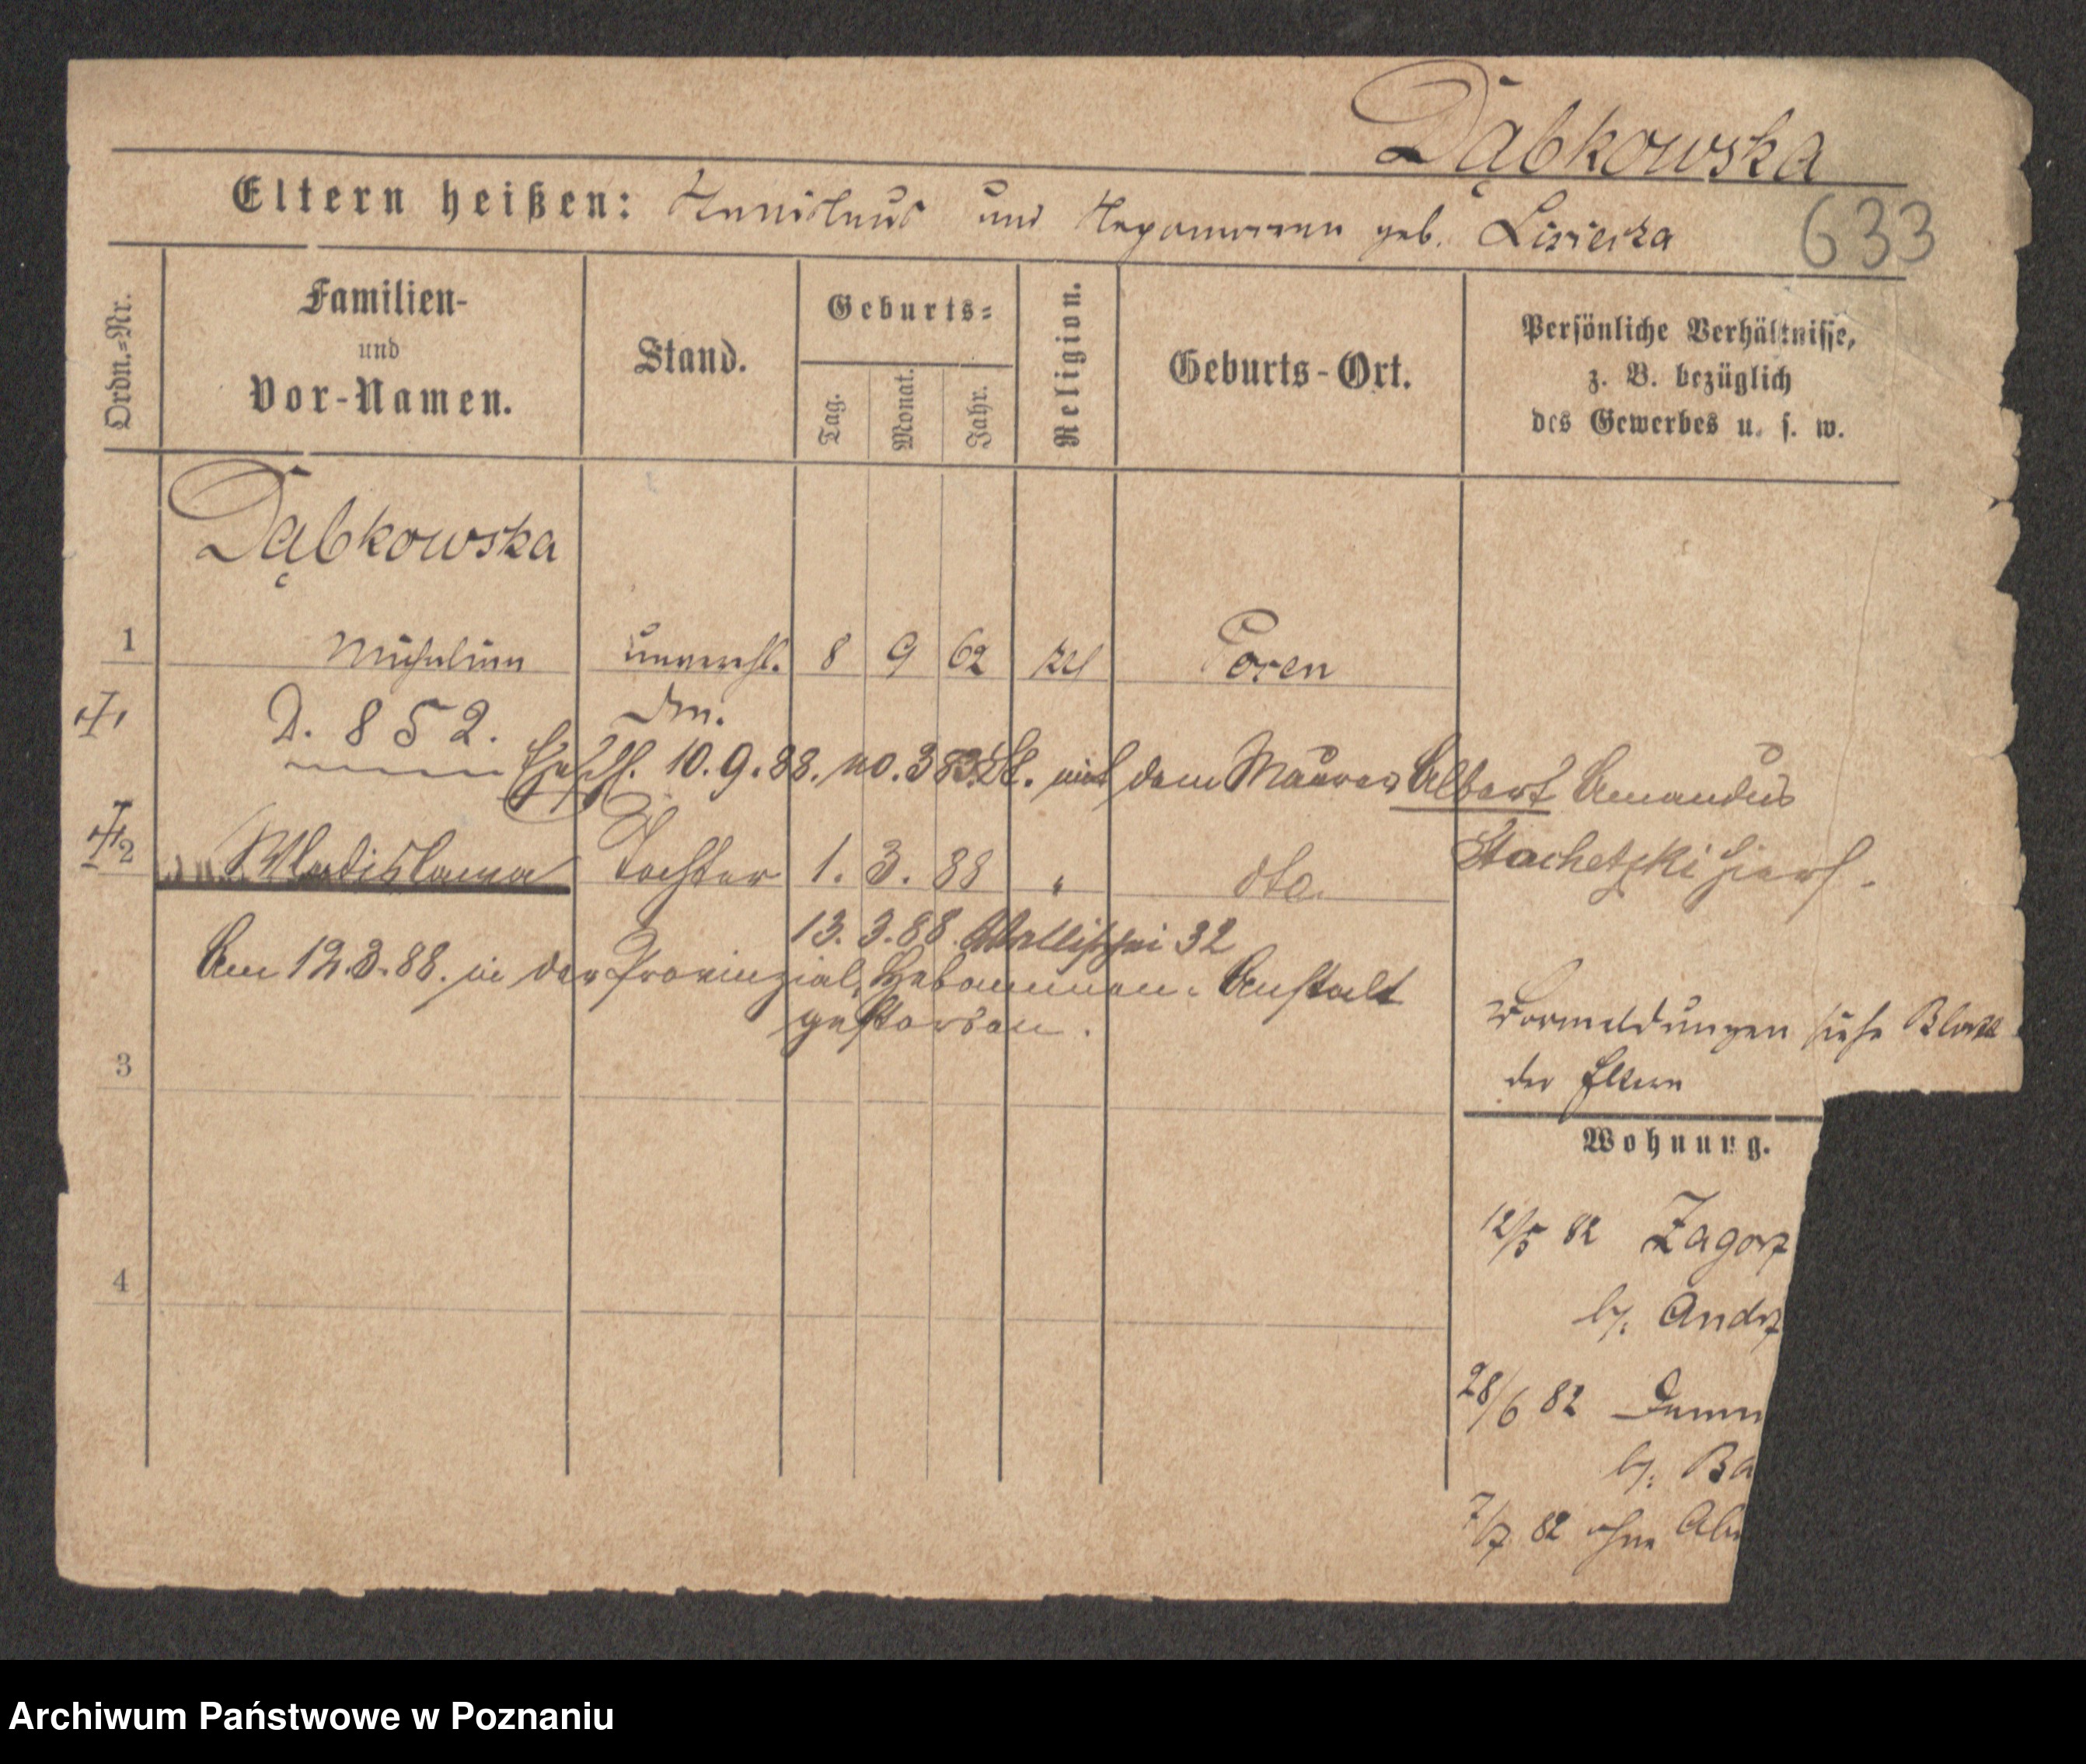 Dąbkowska
Eltern heißen: Stanislaus und Nepomucena geb. Lisiecka
633
Ordn.=Nr.
Familien-
und
Vor-Namen.
Stand.
Geburts=
Tag.
Monat.
Jahr.
Religion.
Geburts-Ort.
Persönliche Verhältnisse,
z. B. bezüglich
des Gewerbes u. s. w.
Dąbkowska
1 Michalina unverehl. 8 9 62 kth Posen
D. 852. Dm.
Eheschl. 10.9.88. no. 383. St. mit dem Maurer Albert Amandus
Stachetzki hierf.
2 Wladislawa Tochter 1. 3. 88 " dto.
13. 3. 88. Wallischei 32
Am 12.3.88. in der Provinzial-Hebammen-Anstalt
gestorben.
Vormeldungen siehe Blatt
der Eltern
3
Wohnung.
12/5 82 Zagorz
by. Andrz
4
28/6 82 Damm
by. Ba
7/7 82 ohne Abm
Archiwum Państwowe w Poznaniu